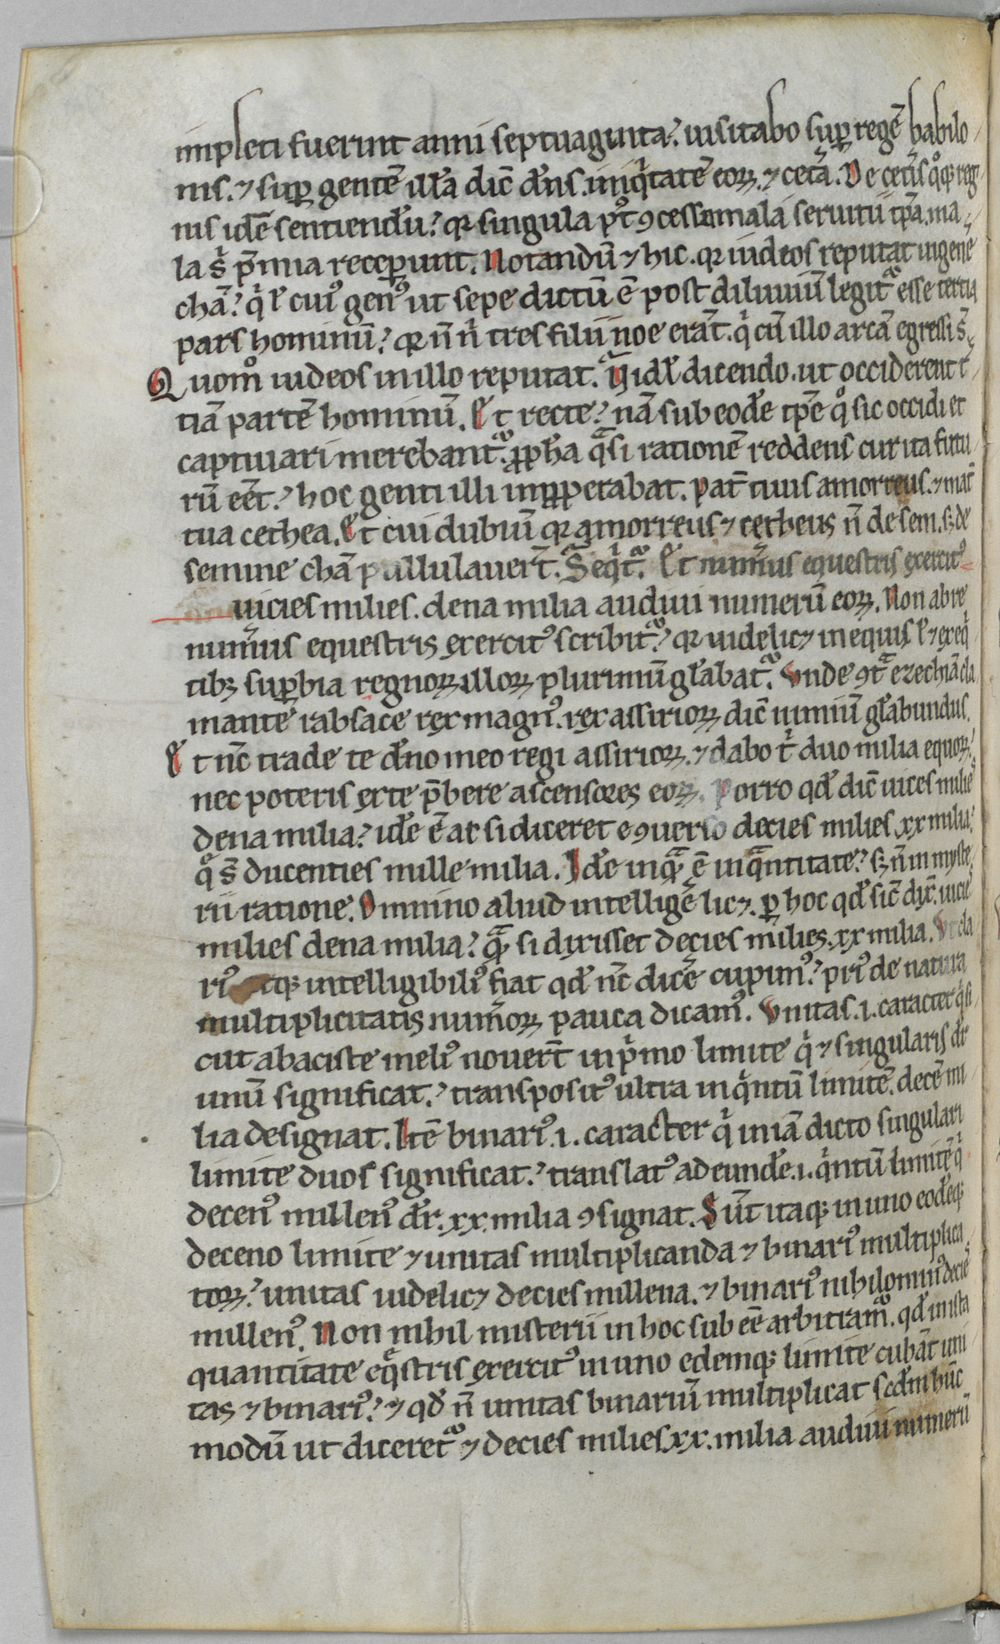 impleti fuerint anni septuaginta? uisitabo sup regē babilo
nis. ⁊ sup gentē illā dic̄ dn̄s. iniq̇tatē eoꝝ. ⁊ cetā. De cetis qͦꝗ reg
nis idē sentiendū? qr singula pꝰt ꝯcessa mala seruitii tp̄a. ma
la s̄ p̄mia receperunt. Notandū ⁊ hic. qr iudeos reputat in gene
chā? q̇ ł cuiꝰ genꝰ ut sepe dictū ē post diluuiū legit᷑ esse tertia
pars hominū? qr n̄ n̄ tres filii noe erāt. q̇ cū illo arcā egressi s̄.
Quom̊ iudeos in illo reputat. Vidꝉ dicendo. ut occiderent t̄
tiā partē hominū. Et recte? nā sub eodē tp̄e qͦ sic occidi et
captiuari merebant᷑. ꝓph̄a q̄si rationē reddens cur ita futu
rū eēt? hoc genti illi imꝓperabat. Pat̄ tuus amorreus. ⁊ mat̄
tua cethea. Et cui dubiū qr amorreus ⁊ cetheus n̄ de sem. sꝫ de
semine chā pullulauer̄t. Seq̇t᷑. Et num̄us equestris exercitꝰ
uicies milies. dena milia audiui numerū eoꝝ. Non abre
num̄us equestris exercitꝰ scribit᷑? qr uidelicꝫ in equis ł ⁊ exeq̇
tibꝫ sup̱bia regnoꝝ illoꝝ plurimū gl̄abat᷑. Vnde ꝯt̄ ezechiā cla
mante rabsace rex magnꝰ. rex assirioꝝ dic̄ nimiū gl̄abundus.
Et nc̄ trade te dn̄o meo regi assirioꝝ. ⁊ dabo t̄ duo milia equoꝝ?
nec poteris ex te p̄bere ascensores eoꝝ. Porro qd̄ dic̄ uicies milies
dena milia? idē ē ac si diceret eꝯuerso decies milies. xx milia?
qͦ s̄ ducenties mille milia. Idē inq̄ ē in q̄ntitate? sꝫ n̄ in myste
rii ratione. Omnino aliud intelligē licꝫ. p̱ hoc qd̄ sic̄ dix̄. uicies
milies dena milia? q̄ si dixisset decies milies. xx milia. Vt cla
riꝰ atꝗ intelligibiliꝰ fiat qd̄ nc̄ dicē cupimꝰ? priꝰ de natura
multiplicitatis num̄oꝝ pauca dicamꝰ. Vnitas .i. caracter q̇ si
cut abaciste meliꝰ nouer̄t in ṗmo limite q̇ ⁊ singularis dr̄
unū significat? transpositꝰ ultra in q̇ntū limitē. decē mi
lia designat. Itē binariꝰ .i. caracter q̇ in iā dicto singulari
limite duos significat? translatꝰ ad eundē .i. q̇ntū limitē q̇
decenꝰ millenꝰ dr̄. xx. milia ꝯsignat. Sūt itaꝗ in uno eodēꝗ
deceno limite ⁊ unitas multiplicanda ⁊ binariꝰ multiplica
toꝝ? unitas uidelicꝫ decies millena. ⁊ binariꝰ nihilominꝰ decies
millenꝰ. Non nihil misterii in hoc sub eē arbitram᷑. qd̄ in ista
quantitate eq̄stris exercitꝰ in uno edemꝗ limite cubāt uni
tas ⁊ binariꝰ? ⁊ qd̄ n̄ unitas binariū multiplicat scd̄m hūc
modū ut diceret᷑ ⁊ decies milies. xx. milia audiui numerū